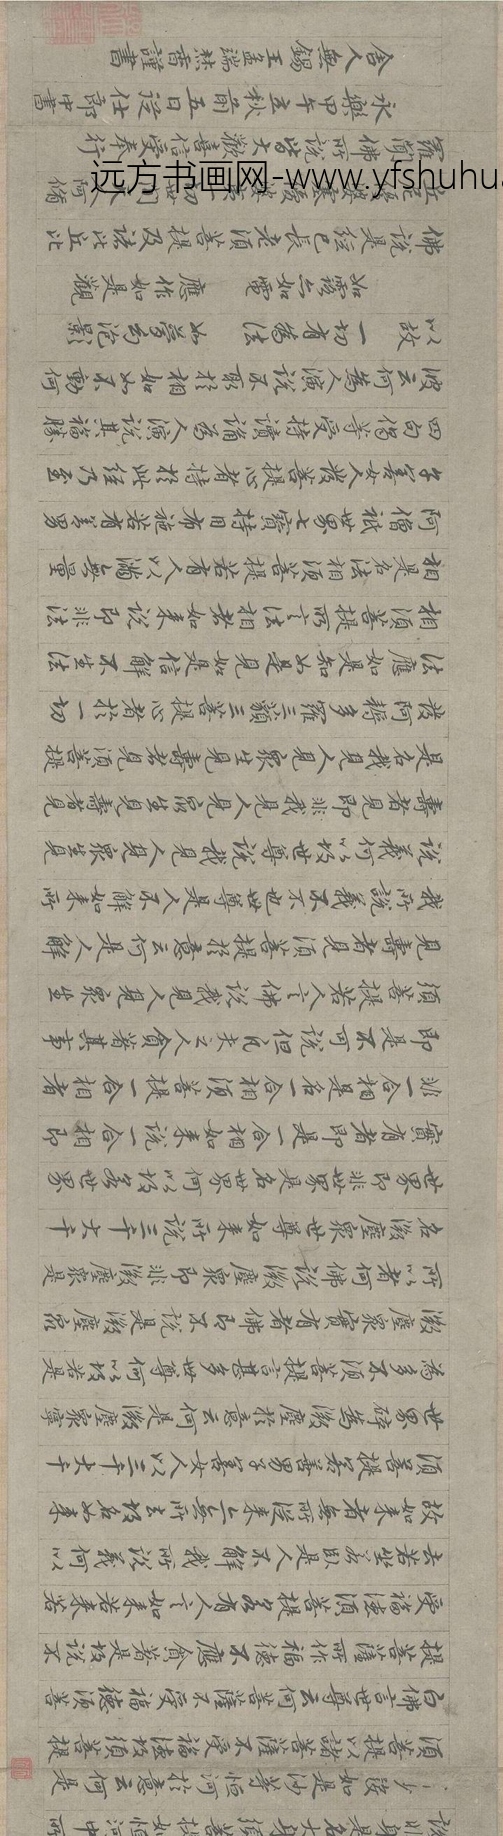 須菩提以諸菩薩不受福德故須菩提
白佛言世尊云何菩薩不受福德須菩
提菩薩所作福德不應貪著是故說不
受福德須菩提若有人言如來若來若
去若坐若臥是人不解我所說義何以
故如來者無所從來亦無所去故名如來
須菩提若善男子善女人以三千大千
世界碎為微塵於意云何是微塵眾寧
為多不須菩提言甚多世尊何以故若是
微塵眾實有者佛即不說是微塵眾
所以者何佛說微塵眾即非微塵眾是
名微塵眾世尊如來所說三千大千
世界即非世界是名世界何以故若世界
實有者即是一合相如來說一合相即
非一合相是名一合相須菩提一合相者
即是不可說但凡夫之人貪著其事
須菩提若人言佛說我見人見眾生
見壽者見須菩提於意云何是人解
我所說義不不也世尊是人不解如來所
說義何以故世尊說我見人見眾生見
壽者見即非我見人見眾生見壽者見
是名我見人見眾生見壽者見須菩提
發阿耨多羅三藐三菩提心者於一切
法應如是知如是見如是信解不生法
相須菩提所言法相者如來說即非法
相是名法相須菩提若有人以滿無量
阿僧祇世界七寶持用布施若有善男
子善女人發菩提心者持於此經乃至
四句偈等受持讀誦為人演說其福勝
彼云何為人演說不取於相如如不動何
以故 一切有為法 如夢幻泡影
如露亦如電 應作如是觀
佛說是經已長老須菩提及諸比丘比
羅聞佛所說皆大歡喜信受奉行
永樂甲午立秋前五日從仕郎中書
舍人無錫王孟端焚香謹書
远方书画网-www.yfshuhua